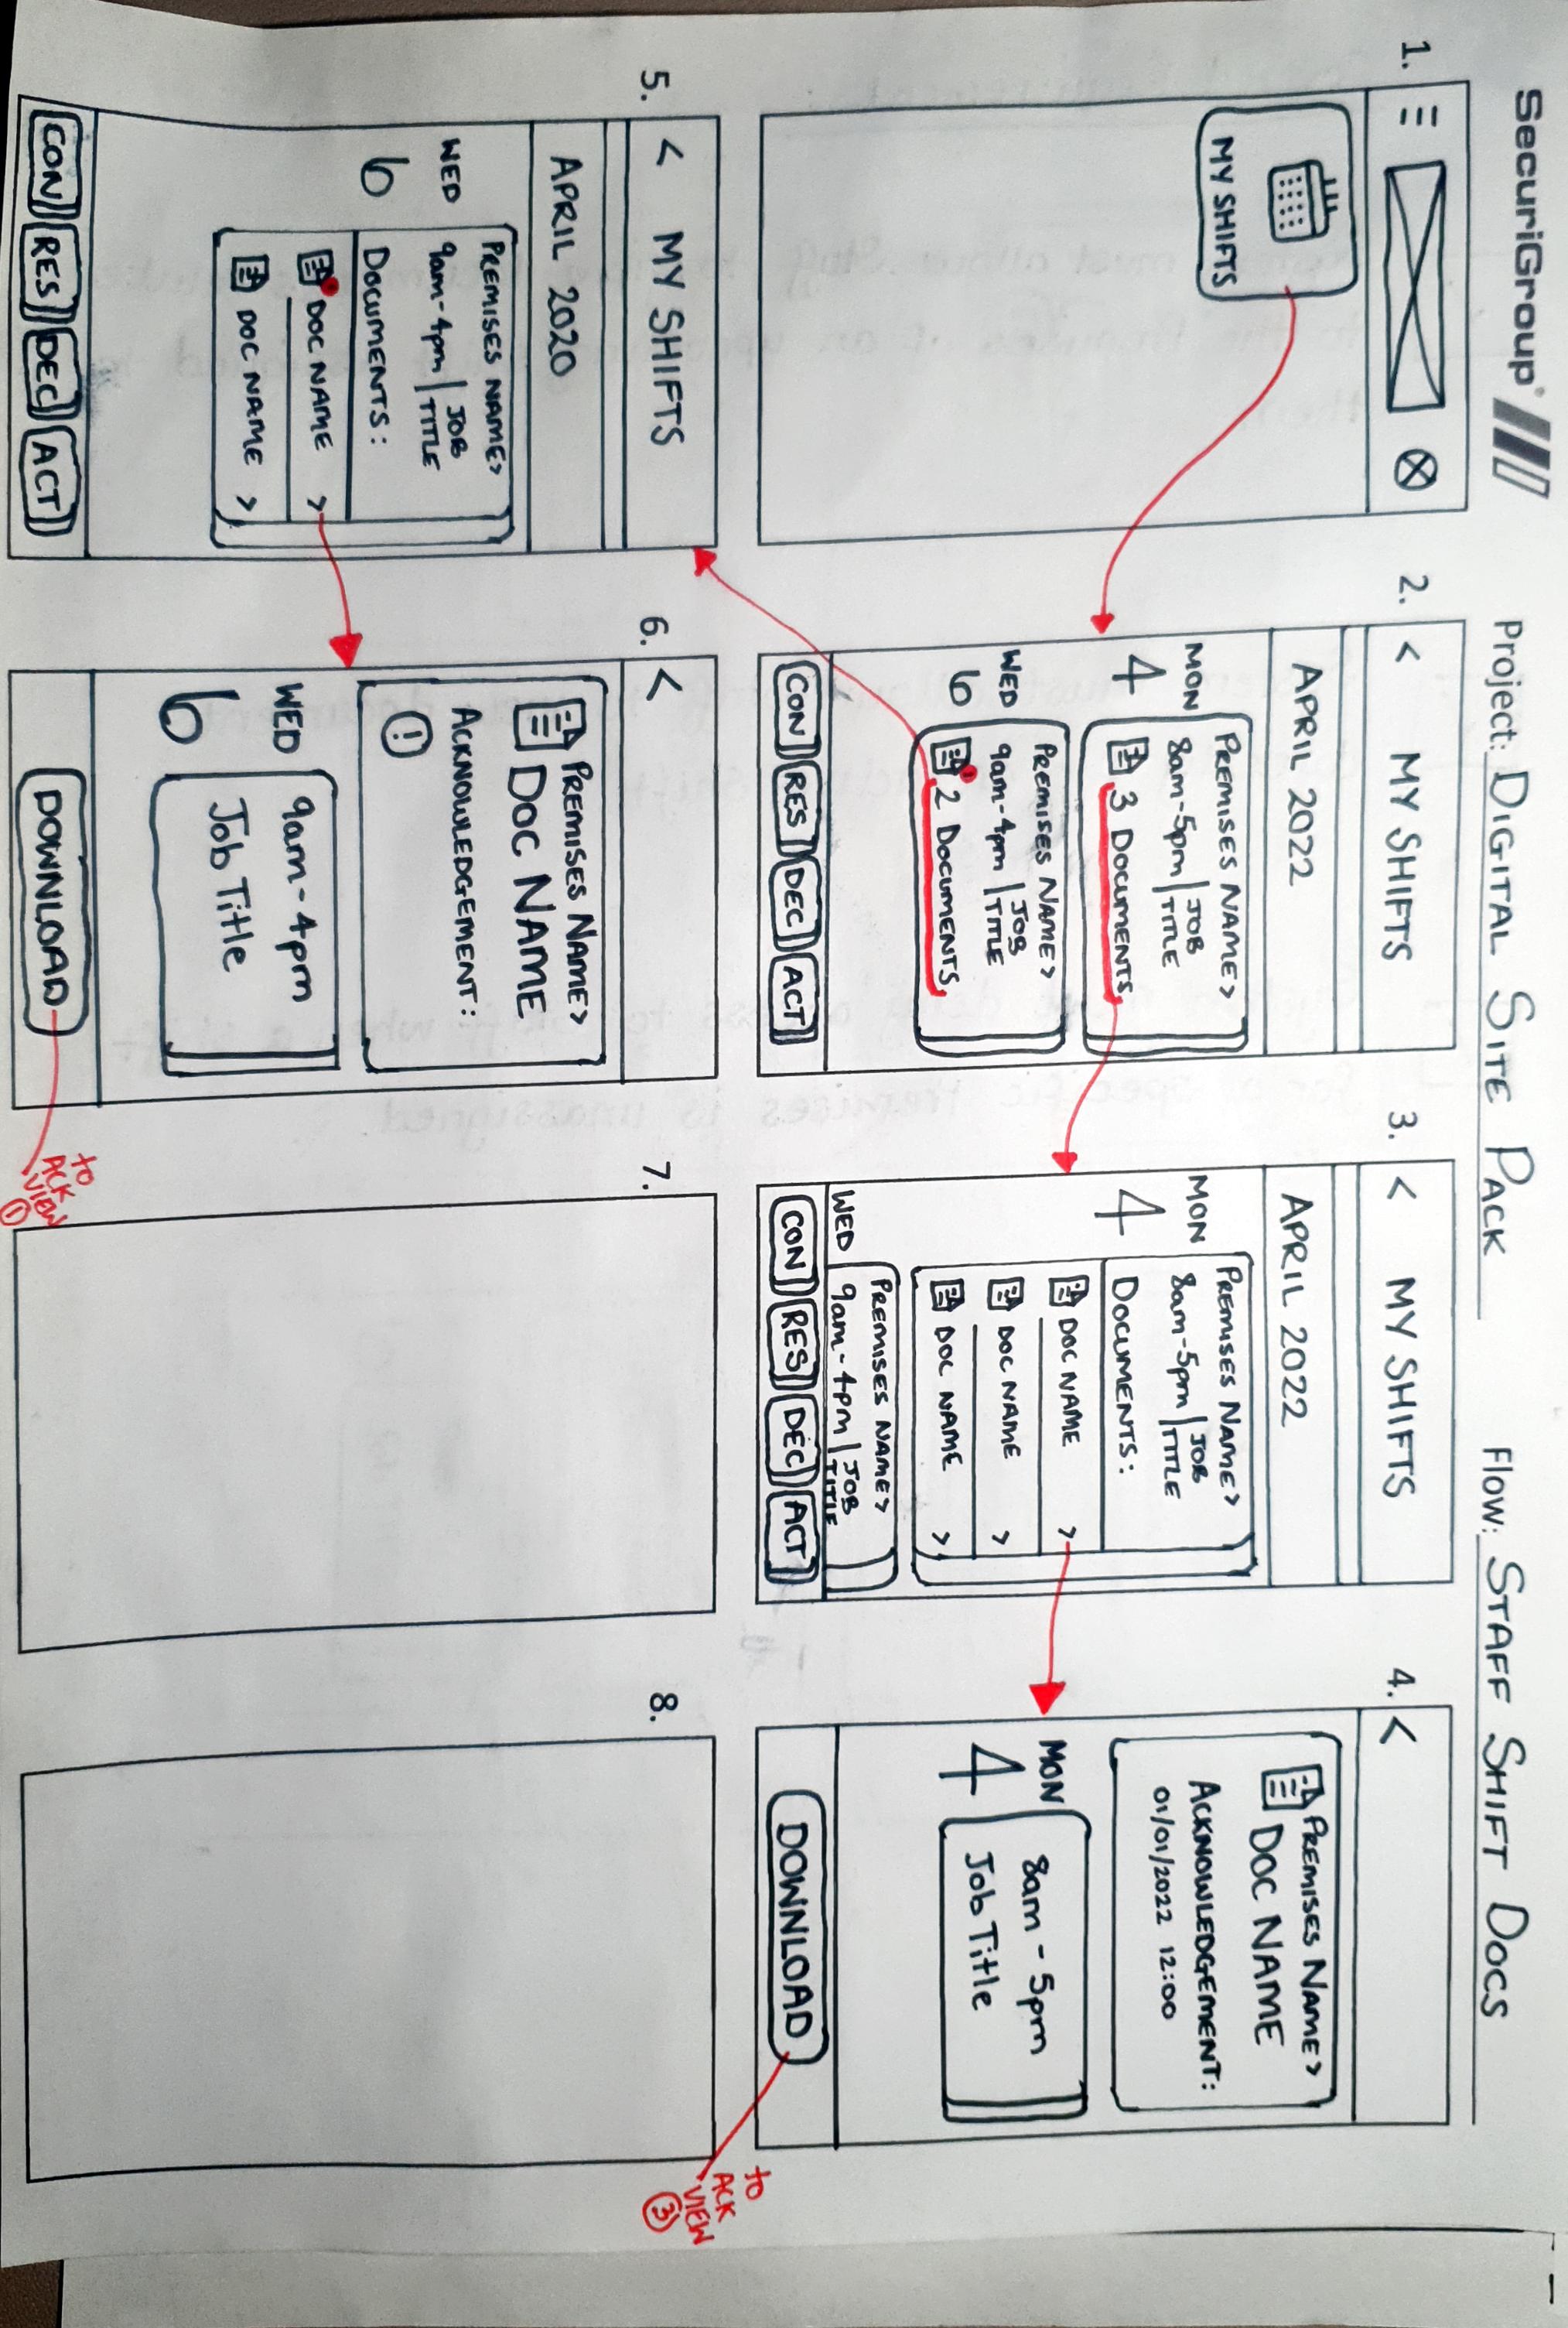 SecuriGroup
Project: DIGITAL SITE PACK
Flow: STAFF SHIFT DOCS
1.
MY SHIFTS
2.
< MY SHIFTS
APRIL 2022
MON
4
PREMISES NAME>
8am-5pm | JOB TITLE
3 DOCUMENTS
WED
6
PREMISES NAME>
9am-4pm | JOB TITLE
2 DOCUMENTS
CON RES DEC ACT
3.
< MY SHIFTS
APRIL 2022
MON
4
PREMISES NAME>
8am-5pm | JOB TITLE
DOCUMENTS:
DOC NAME >
DOC NAME >
DOC NAME >
WED
PREMISES NAME>
9am-4pm | JOB TITLE
CON RES DEC ACT
4.
<
PREMISES NAME>
DOC NAME
ACKNOWLEDGEMENT:
01/01/2022 12:00
MON
4
8am - 5pm
Job Title
DOWNLOAD
to
ACK
VIEW
3
5.
< MY SHIFTS
APRIL 2020
WED
6
PREMISES NAME>
9am-4pm | JOB TITLE
DOCUMENTS:
DOC NAME >
DOC NAME >
CON RES DEC ACT
6.
<
PREMISES NAME>
DOC NAME
ACKNOWLEDGEMENT:
!
WED
6
9am-4pm
Job Title
DOWNLOAD
to
ACK
VIEW
1
7.
8.